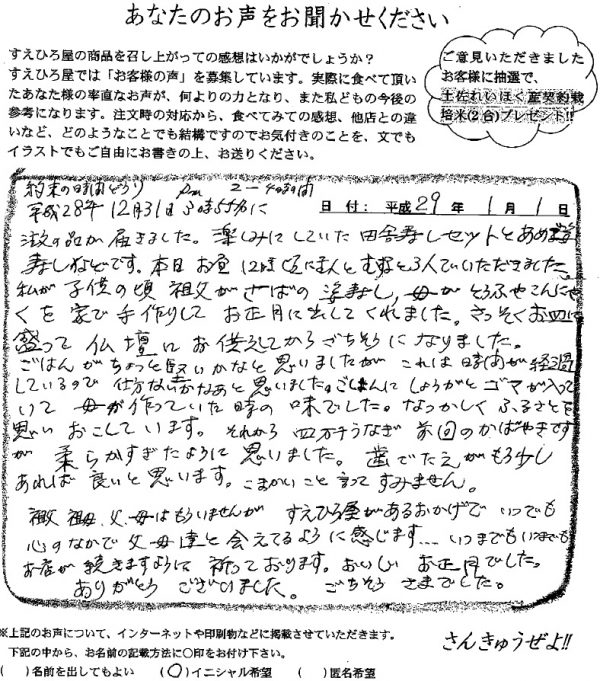 あなたのお声をお聞かせください
すえひろ屋の商品を召し上がっての感想はいかがでしょうか？
すえひろ屋では「お客様の声」を募集しています。実際に食べて頂い
たあなた様の率直なお声が、何よりの力となり、また私どもの今後の
参考になります。注文時の対応から、食べてみての感想、他店との違
いなど、どのようなことでも結構ですのでお気付きのことを、文でも
イラストでもご自由にお書きの上、お送りください。
ご意見いただきました
お客様に抽選で、
土佐れいほく産契約栽
培米(2合)プレゼント!!
約束の時間どうり pm 2－4時の間
平成28年12月31日3時55分に
日付：平成29年1月1日
注文の品が届きました。楽しみにしていた田舎寿しセットとあめご姿
寿しなどです。本日お昼12時頃に主人とむすめと3人でいただきました。
私が子供の頃祖父がさばの姿寿し、母がとうふやこんにゃ
くを家で手作りしてお正月に出してくれました。さっそくお皿に
盛って仏壇にお供えしてからごちそうになりました。
ごはんがちょっと堅いかなと思いましたがこれは時間が経過
しているので仕方ないかなあと思いました。ごはんにしょうがとゴマが入って
いて母が作っていた時の味でした。なつかしくふるさとを
思いおこしています。それから四万十うなぎ前回のかばやきです
が柔らかすぎたように思いました。歯ごたえがもう少し
あれば良いと思います。こまかいこと言ってすみません。
祖父、祖母、父、母はもういませんがすえひろ屋があるおかげでいつでも
心のなかで父母達と会えてるように感じます…いつまでもいつまでも
お店が続きますように祈っております。おいしいお正月でした。
ありがとうございました。ごちそうさまでした。
※上記のお声について、インターネットや印刷物などに掲載させていただきます。
下記の中から、お名前の記載方法に〇印をお付け下さい。
(　)名前を出してもよい　(〇)イニシャル希望　(　)匿名希望
さんきゅうぜよ!!